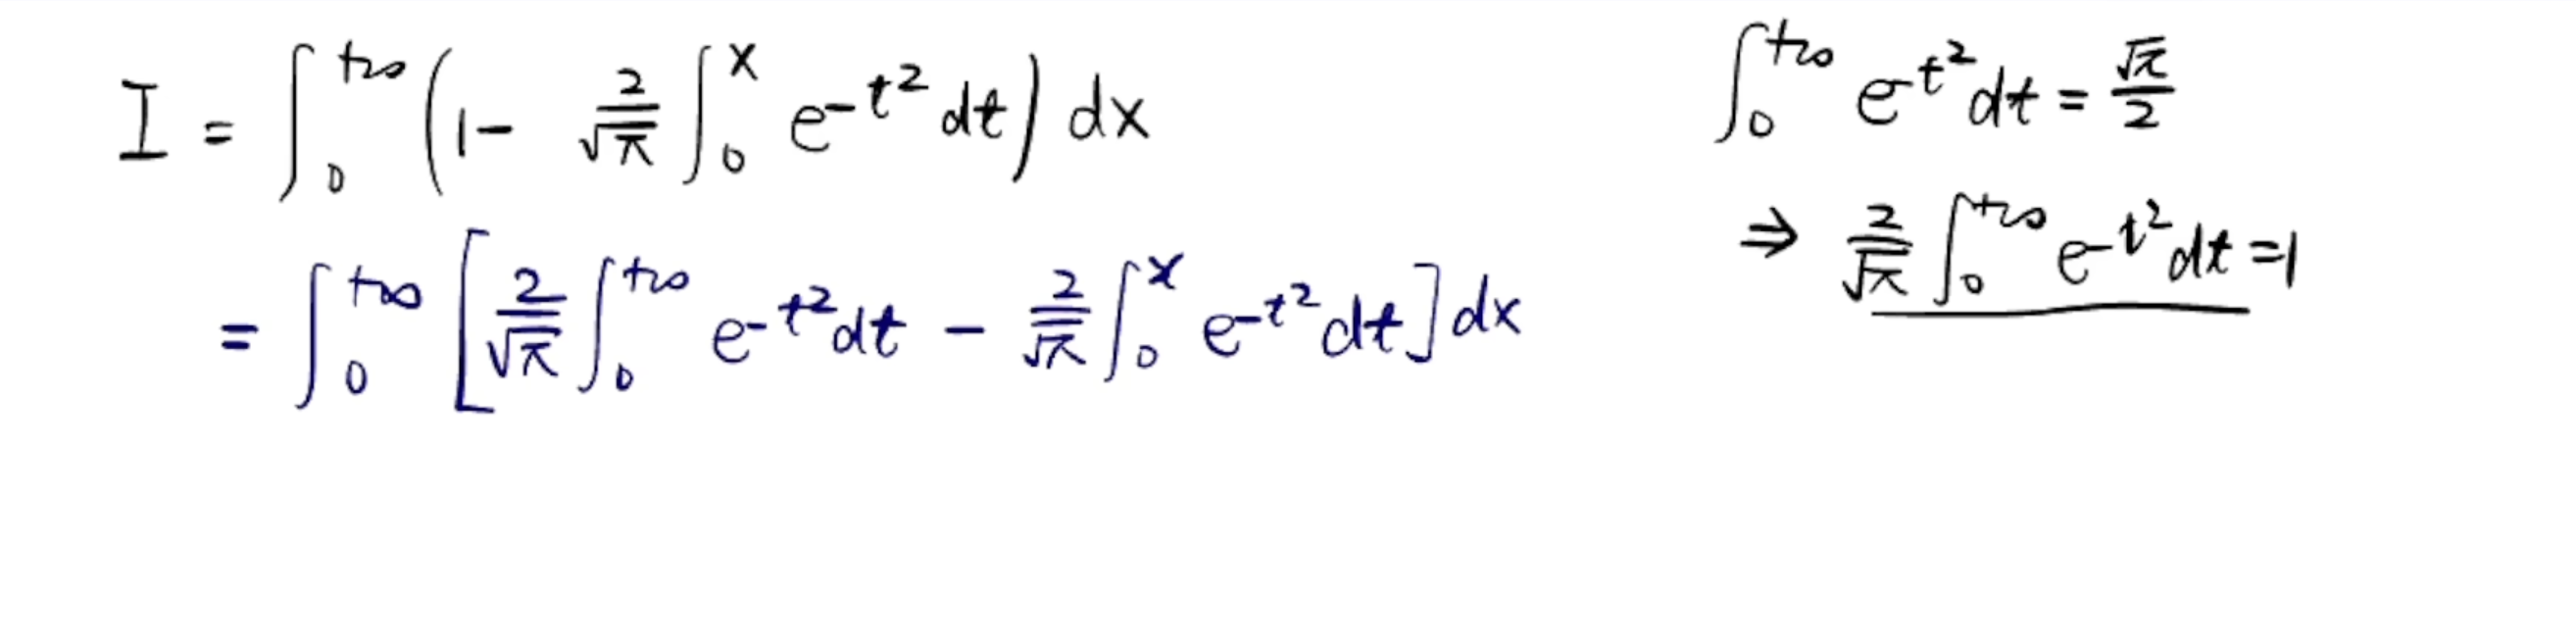 I = ∫₀^{+∞} (1 - 2/√π ∫₀^x e^{-t²} dt) dx
= ∫₀^{+∞} [2/√π ∫₀^{+∞} e^{-t²} dt - 2/√π ∫₀^x e^{-t²} dt] dx
∫₀^{+∞} e^{-t²} dt = √π/2
⇒ 2/√π ∫₀^{+∞} e^{-t²} dt = 1